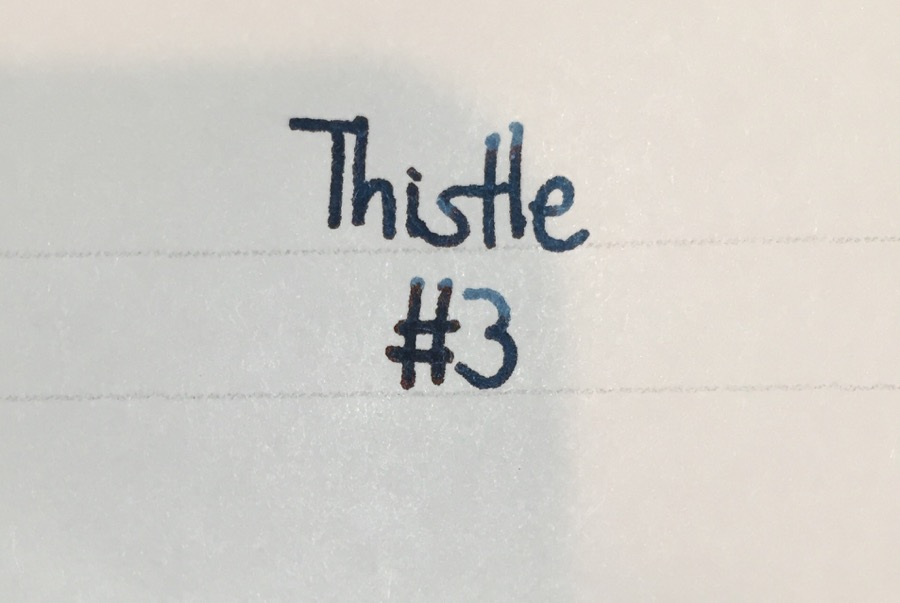 Thistle
#3